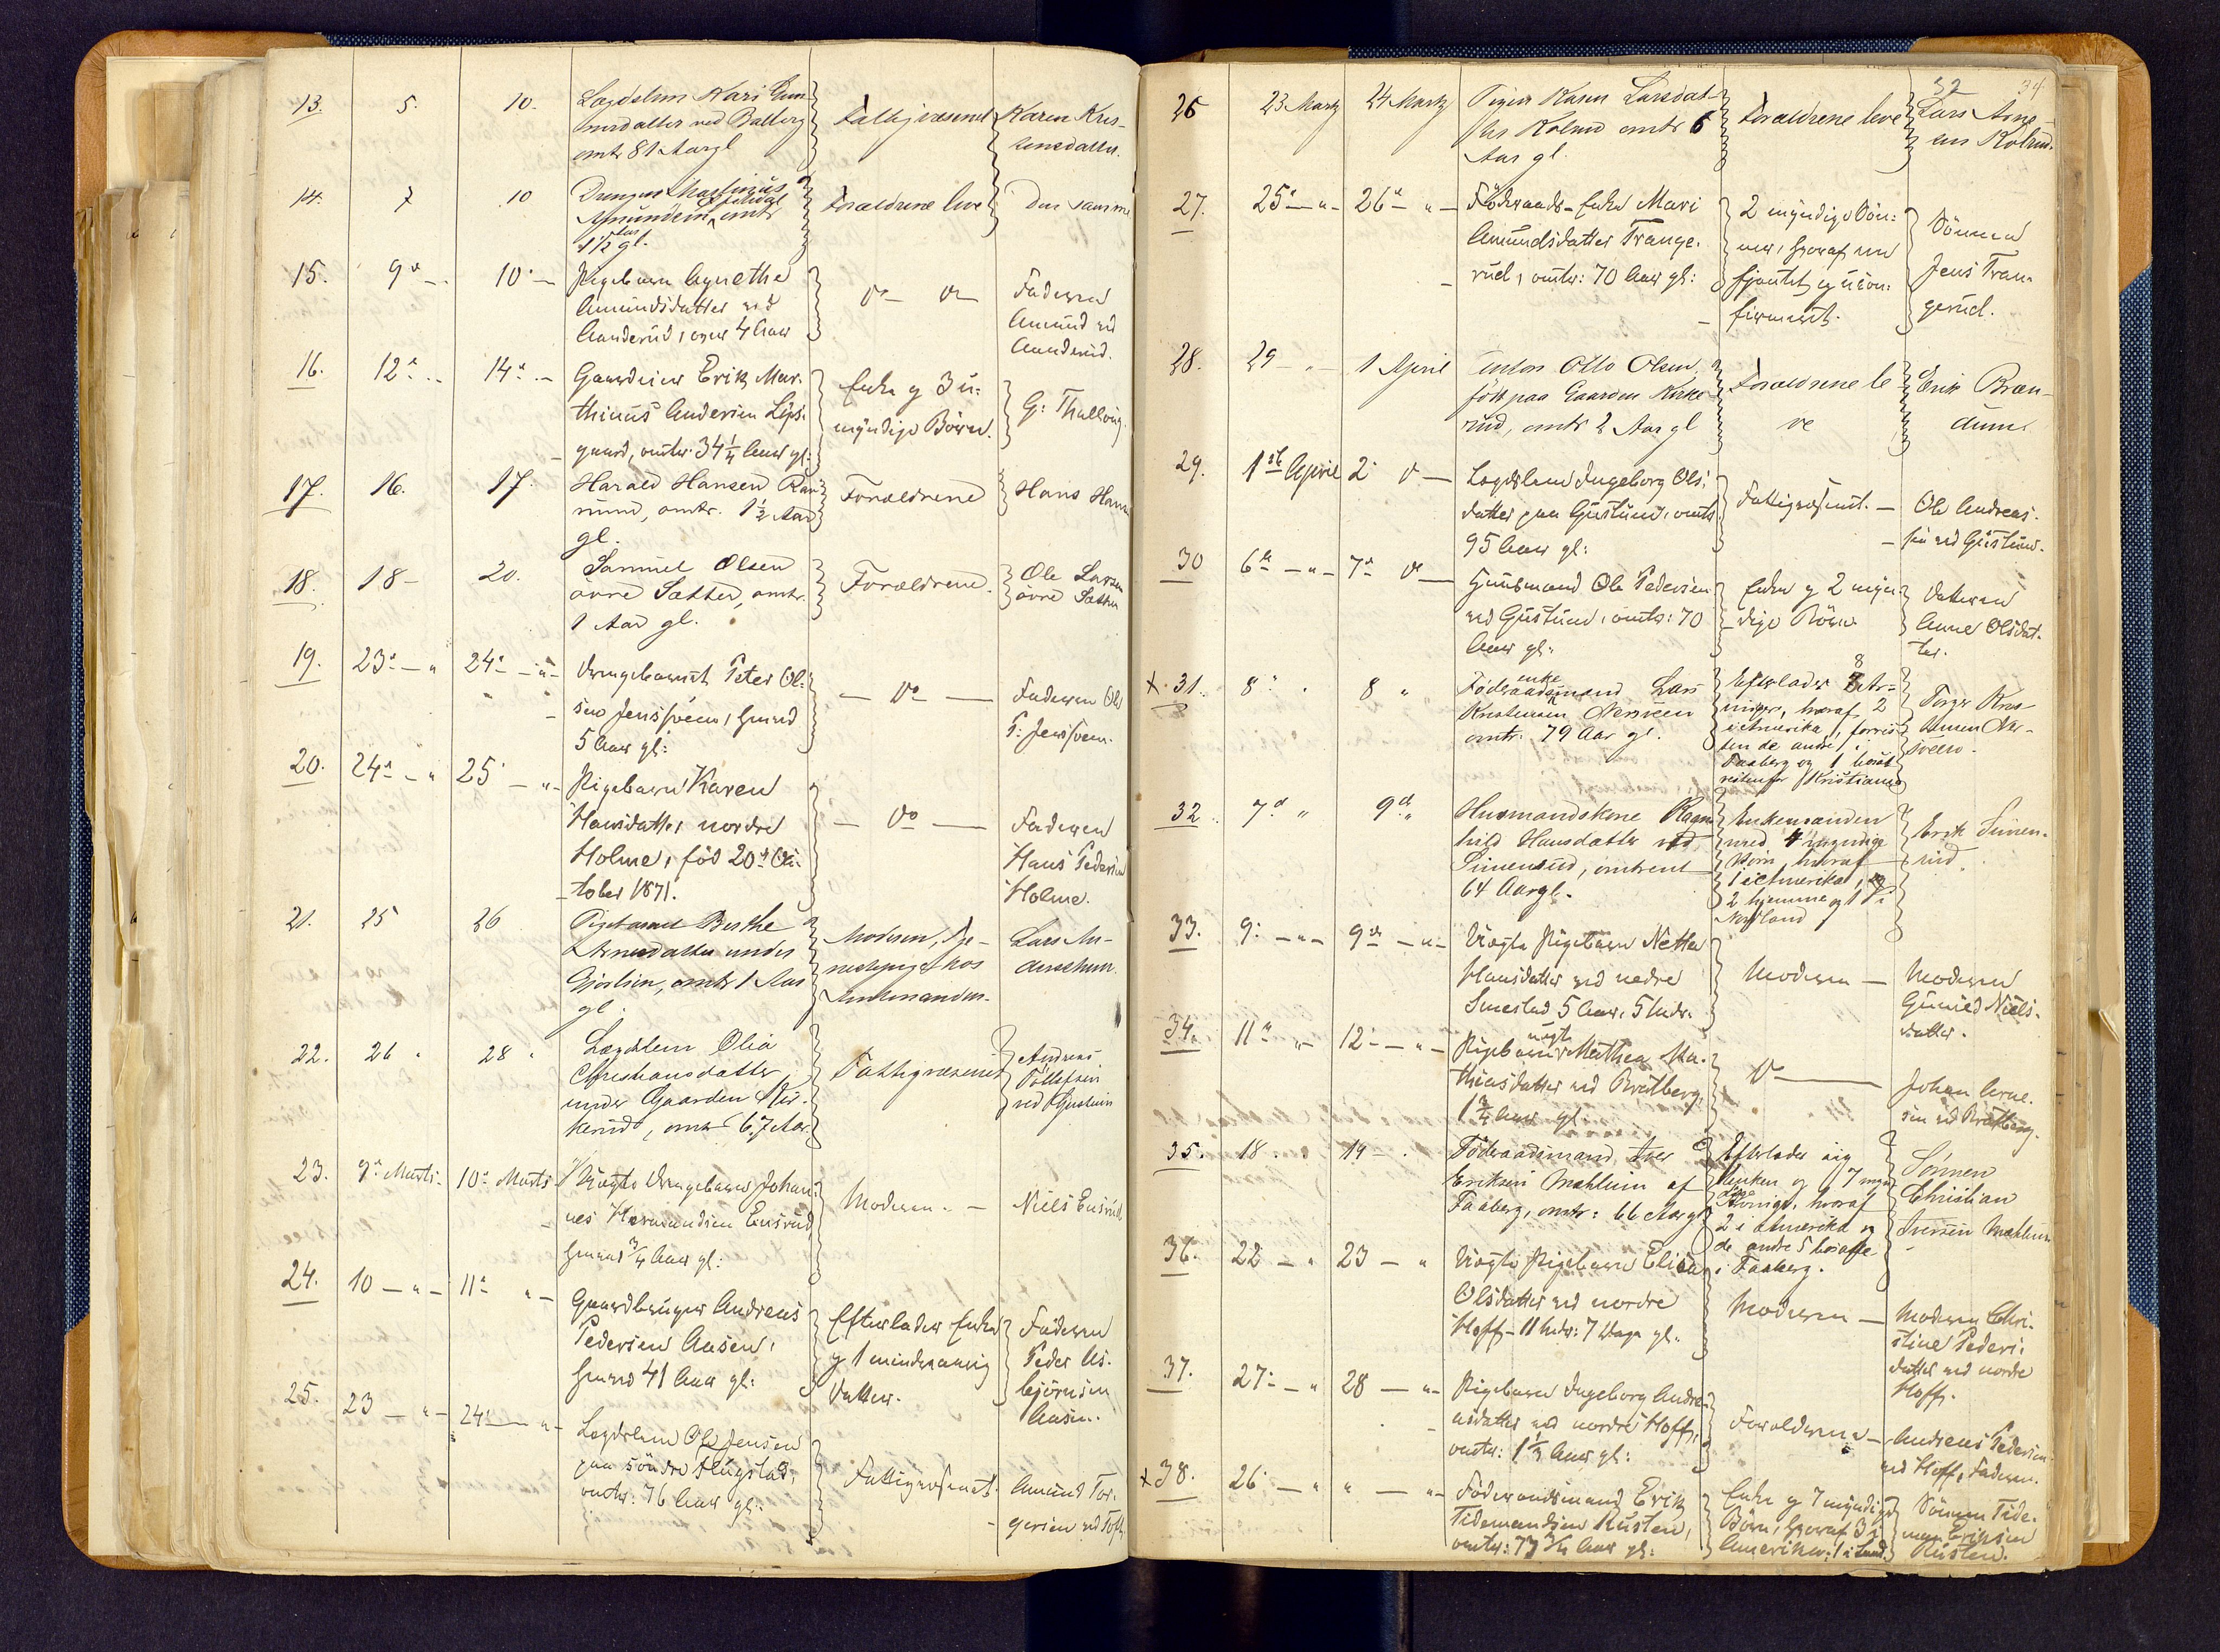 13. 5. 10. Lægdslem Kari Gun-
nersdatter ved Balberg
omtr 81 Aar gl
Fattigvæsenet
Karen Kris-
tensdatter.
14. 7 10 Drengen Martinius
Amundsen omtr
1½ Aar gl.
Forældrene leve
Den samme
15. 9de — 10de — Pigebarn Agnethe
Amundsdatter ved
Aanderud, over 4 Aar
do do
Faderen
Amund ved
Aanderud.
16. 12te — 14de — Gaardeier Erik Mar-
thinus Andersen
gaard, omtr. 34¼ Aar gl:
Enke og 3 u-
myndige Børn.
G:
17. 16. 17. Harald Hansen
omtr. 1½ Aar
gl.
Forældrene
Hans
18. 18 - 20. Samuel Olsen
övre Sætter, omtr.
1 Aar gl.
Forældrene.
Ole Larsen
övre Sætter
19. 23de — " 24de — " — Drengebarnet Peter Ol-
sen Jenssveen, henved
5 Aar gl:
— Do —
Faderen Ole
P: Jenssveen.
20. 24de — " 25 — " — Pigebarn Karen
Hansdatter nordre
Holme, fød 20de Ok-
tober 1871.
— Do —
Faderen
Hans Pedersen
Holme.
21. 25 26 Pigebarnet Berthe
Arnesdatter under
omtr 1 Aar
gl.
Moderen, Tje-
nestepige hos
Lars An-
22. 26 " 28 " Lægdslem Olia
Christiansdatter
under Gaarden
omtr 67 Aar.
Fattigvæsenet
Andreas
ved
23. 9de Marts. 10de Marts. Uægte Drengebarn Johan-
nes Hermansen Ensrud,
henved ¾ Aar gl:
Moderen. —
Niels Ensrud
24. 10 — " — 11te " — Gaardbruger Andreas
Pedersen Aasen,
henved 41 Aar gl:
Efterlader Enke
og 1 mindreaarig
Datter.
Faderen
Peder As-
björnsen
Aasen.
25. 23 — " — 24de — " — Lægdslem Ole Jensen
paa söndre
omtr: 76 Aar gl:
Fattigvæsenet.
Amund Tor-
gersen ved
32 34
26 23 Marts 24 Marts Pigen Karen Larsdat-
ter Kolrud omtr 6
Aar gl.
Forældrene leve
Lars Arne-
sen Kolrud.
27. 25de — " — 26de " — Föderaads-Enke Mari
Amundsdatter Trange-
rud, omtr: 70 Aar gl:
2 myndige Sön-
ner, hvoraf en
ucon-
firmeret.
Sönnen
Jens Tran-
gerud.
28. 29 — " — 1 April Anton Otto Olsen,
född paa Gaarden Kirke-
rud, omtr 2 Aar gl
Forældrene le-
ve
Erik Bræn-
29. 1ste April 2 D — Lægdslem Ingeborg Ols-
datter paa Gustum, omtr
95 Aar gl:
Fattigvæsenet. —
Ole Andreas-
sen ved Gustum.
30 6te — " — 7de D — Huusmand Ole Pedersen
ved Gustum, omtr: 70
Aar gl:
Enke og 2 myn-
dige Börn.
Datteren
Anne Olsdat-
ter.
x 31. 8de " 8 " Föderaadsenkemand Lars
Kristensen Nersveen
omtr. 79 Aar gl.
Efterlader 8 Ar-
vinger, hvoraf 2
i Amerika,
de andre i
Faaberg og 1 bosat
Kristiania
Torger Kris-
tensen Ner-
sveen.
32 7de " 9de " Husmandskone Ragn-
hild Hansdatter ved
Simensrud, omtrent
64 Aar gl.
Enkemanden
med 4 myndige
Börn, hvoraf
1 i Amerika,
2 hjemme og 1 i
Nordland
Erik Simen-
rud.
33. 9de — " — 9de — " — Uægte Pigebarn Netha
Hansdatter ved nedre
Smestad 5 Aar, 5 Mdr.
Moderen —
Moderen
Gunild Niels-
datter.
34. 11te " — 12te — " — Pigebarn uægte Mathea Ma-
thiasdatter ved Bratberg,
1¾ Aar gl.
Do —
Johan Arne-
sen ved Bratberg.
35. 18 . . 19 — . Föderaadsmand Iver
Eriksen Mæhlum af
Faaberg, omtr: 66 Aar gl.
Efterlader sig
Enken og 7 myn-
dige hvoraf
2 i Amerika og
de andre 5 bosatte
i Faaberg.
Sönnen
Christian
Iversen Mæhlum
36. 22 — " 23 — " Uægte Pigebarn Elisa
Olsdatter ved nordre
Hoff - 11 Mdr: 7 Dage gl.
Moderen —
Moderen Chri-
stine Peders-
datter ved nordre
Hoff.
37. 27de — " 28 — " — Pigebarn Ingeborg Andre-
asdatter ved nordre Hoff,
omtr: 1½ Aar gl:
Forældrene —
Andreas Pedersen
ved Hoff, Faderen.
x 38. 26 — " " — " — Föderaadsmand Erik
Tidemandsen Rusten,
omtr: 73¾ Aar gl:
Enke og 7 myndige
Börn, hvoraf 3 i
Amerika; 1 i Land.
Sönnen Tide-
man Eriksen
Rusten.